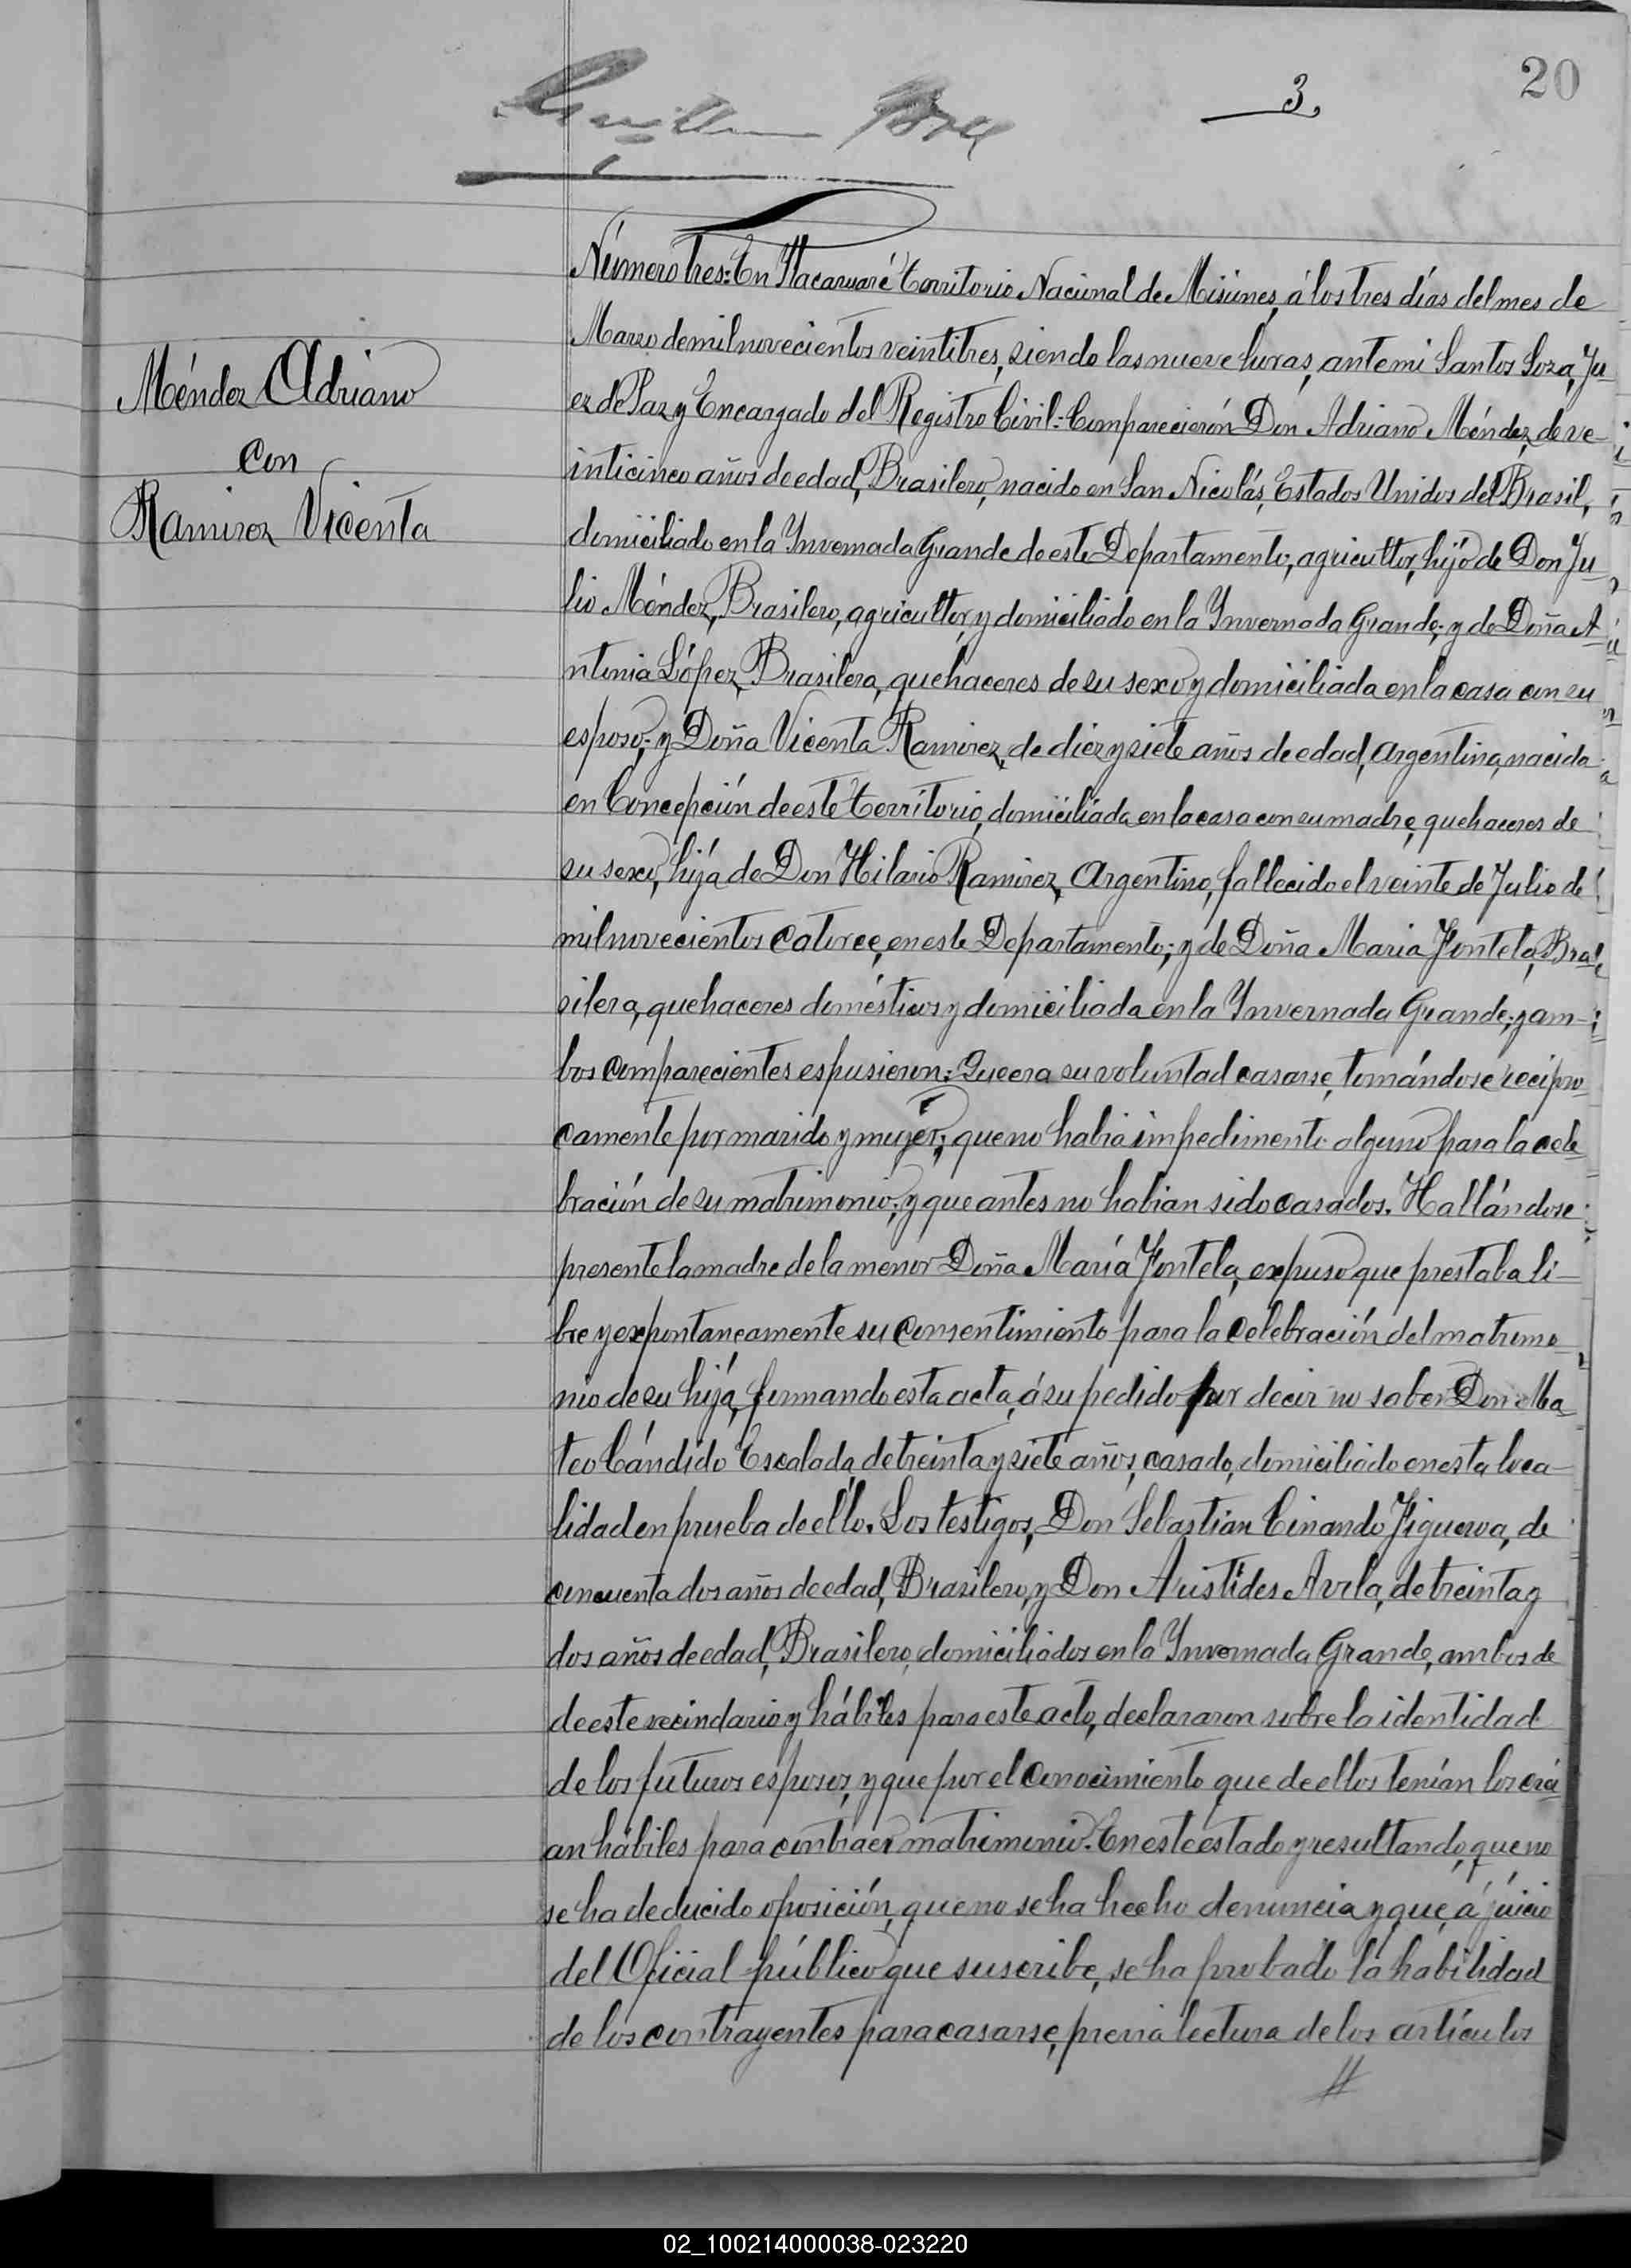 20
3.
Méndez Adriano
con
Ramirez Vicenta
Número tres: En Itacaruaré Territorio Nacional de Misiones, á los tres días del mes de
Marzo de mil novecientos veintitres, siendo las nueve horas, ante mi Santos Loza, Ju
ez de Paz y Encargado del Registro Civil: Comparecierón Don Adriano Méndez, de ve
inticinco años de edad, Brasilero, nacido en San Nicolás, Estados Unidos del Brasil,
domiciliado en la Ynvernada Grande de este Departamento, agricultor, hijo de Don Ju
lio Méndez, Brasilero, agricultor, y domiciliado en la Ynvernada Grande; y de Doña A
ntonia López, Brasilera, quehaceres de su sexo y domiciliada en la casa con su
esposo; y Doña Vicenta Ramirez, de diez y siete años de edad, Argentina, nacida
en Concepción de este territorio, domiciliada en la casa con su madre, quehaceres de
su sexo, hija de Don Hilario Ramirez, Argentino, fallecido el veinte de Julio de
mil novecientos catorce, en este Departamento; y de Doña Maria Fontela, Bra
silera, quehaceres domésticos y domiciliada en la Ynvernada Grande; y am-
bos comparecientes espusieron: Que era su voluntad casarse, tomándose recipro
camente por marido y mujer; que no habia impedimento alguno para la cele
bración de su matrimonio; y que antes no habian sido casados. Hallándose
presente la madre de la menor Doña María Fontela, expuso que prestaba li-
bre y expontaneamente su consentimiento para la celebración del matrimo
nio de su hijá, firmando esta acta, á su pedido por decir no saber Don Ma
teo Cándido Escalada, de treinta y siete años, casado, domiciliado en esta loca-
lidad en prueba de ello. Los testigos, Don Sebastian Cinando Figueroa, de
cincuenta dos años de edad, Brasilero, y Don Aristides Avila, de treinta y
dos años de edad, Brasilero, domiciliados en la Ynvernada Grande, ambos de
de este vecindario y hábiles para este acto, declararon sobre la identidad
de los futuros esposos, y que por el conocimiento que de ellos tenían los creí
an hábiles para contraer matrimonio. En este estado y resultando, que no
se ha deducido oposición, que no se ha hecho denuncia y que, á júicio
del Oficial público que suscribe, se ha probado la habilidad
de los contrayentes para casarse, previa lectura de los artículos
//
02_100214000038-023220